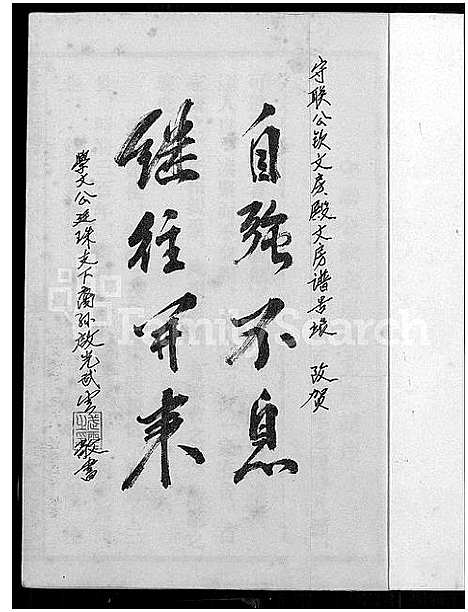 守联公钦文房殿文房谱告竣 致贺
自强不息
继往开来
学文公廷珠支下裔孙启光武 敬书
FamilySearch